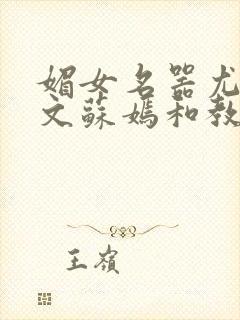 媚女名器尤
文蘇媽和教
王嶺